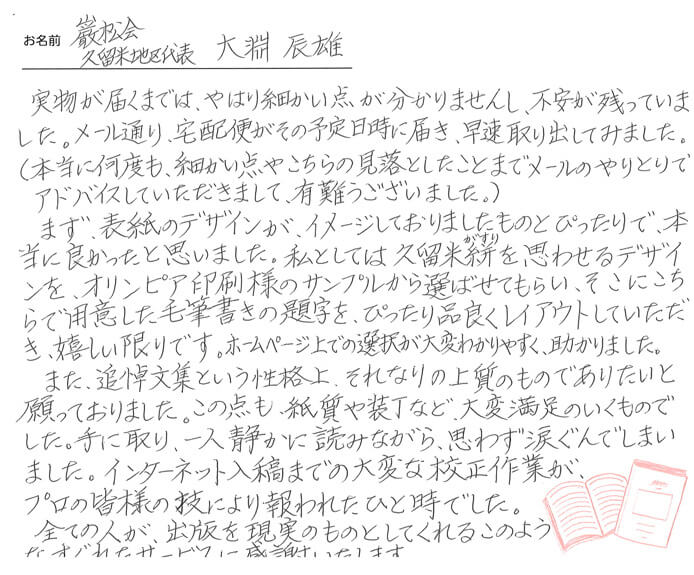 お名前 巌松会
久留米地区代表 大淵 辰雄
実物が届くまでは、やはり細かい点が分かりませんし、不安が残っていま
した。メール通り、宅配便がその予定日時に届き、早速取り出してみました。
(本当に何度も、細かい点やこちらの見落としたことまでメールのやりとりで
アドバイスしていただきまして、有難うございました。)
まず、表紙のデザインが、イメージしておりましたものとぴったりで、本
当に良かったと思いました。私としては久留米絣(がすり)を思わせるデザイ
ンを、オリンピア印刷様のサンプルから選ばせてもらい、そこにこち
らで用意した毛筆書きの題字を、ぴったり品良くレイアウトしていただ
き、嬉しい限りです。ホームページ上での選択が大変わかりやすく、助かりました。
また、追悼文集という性格上、それなりの上質のものでありたいと
願っておりました。この点も、紙質や装丁など、大変満足のいくもので
した。手に取り、一人静かに読みながら、思わず涙ぐんでしまい
ました。インターネット入稿までの大変な校正作業が、
プロの皆様の技により報われたひと時でした。
全ての人が、出版を現実のものとしてくれるこのよう
なすぐれたサービスに感謝いたします